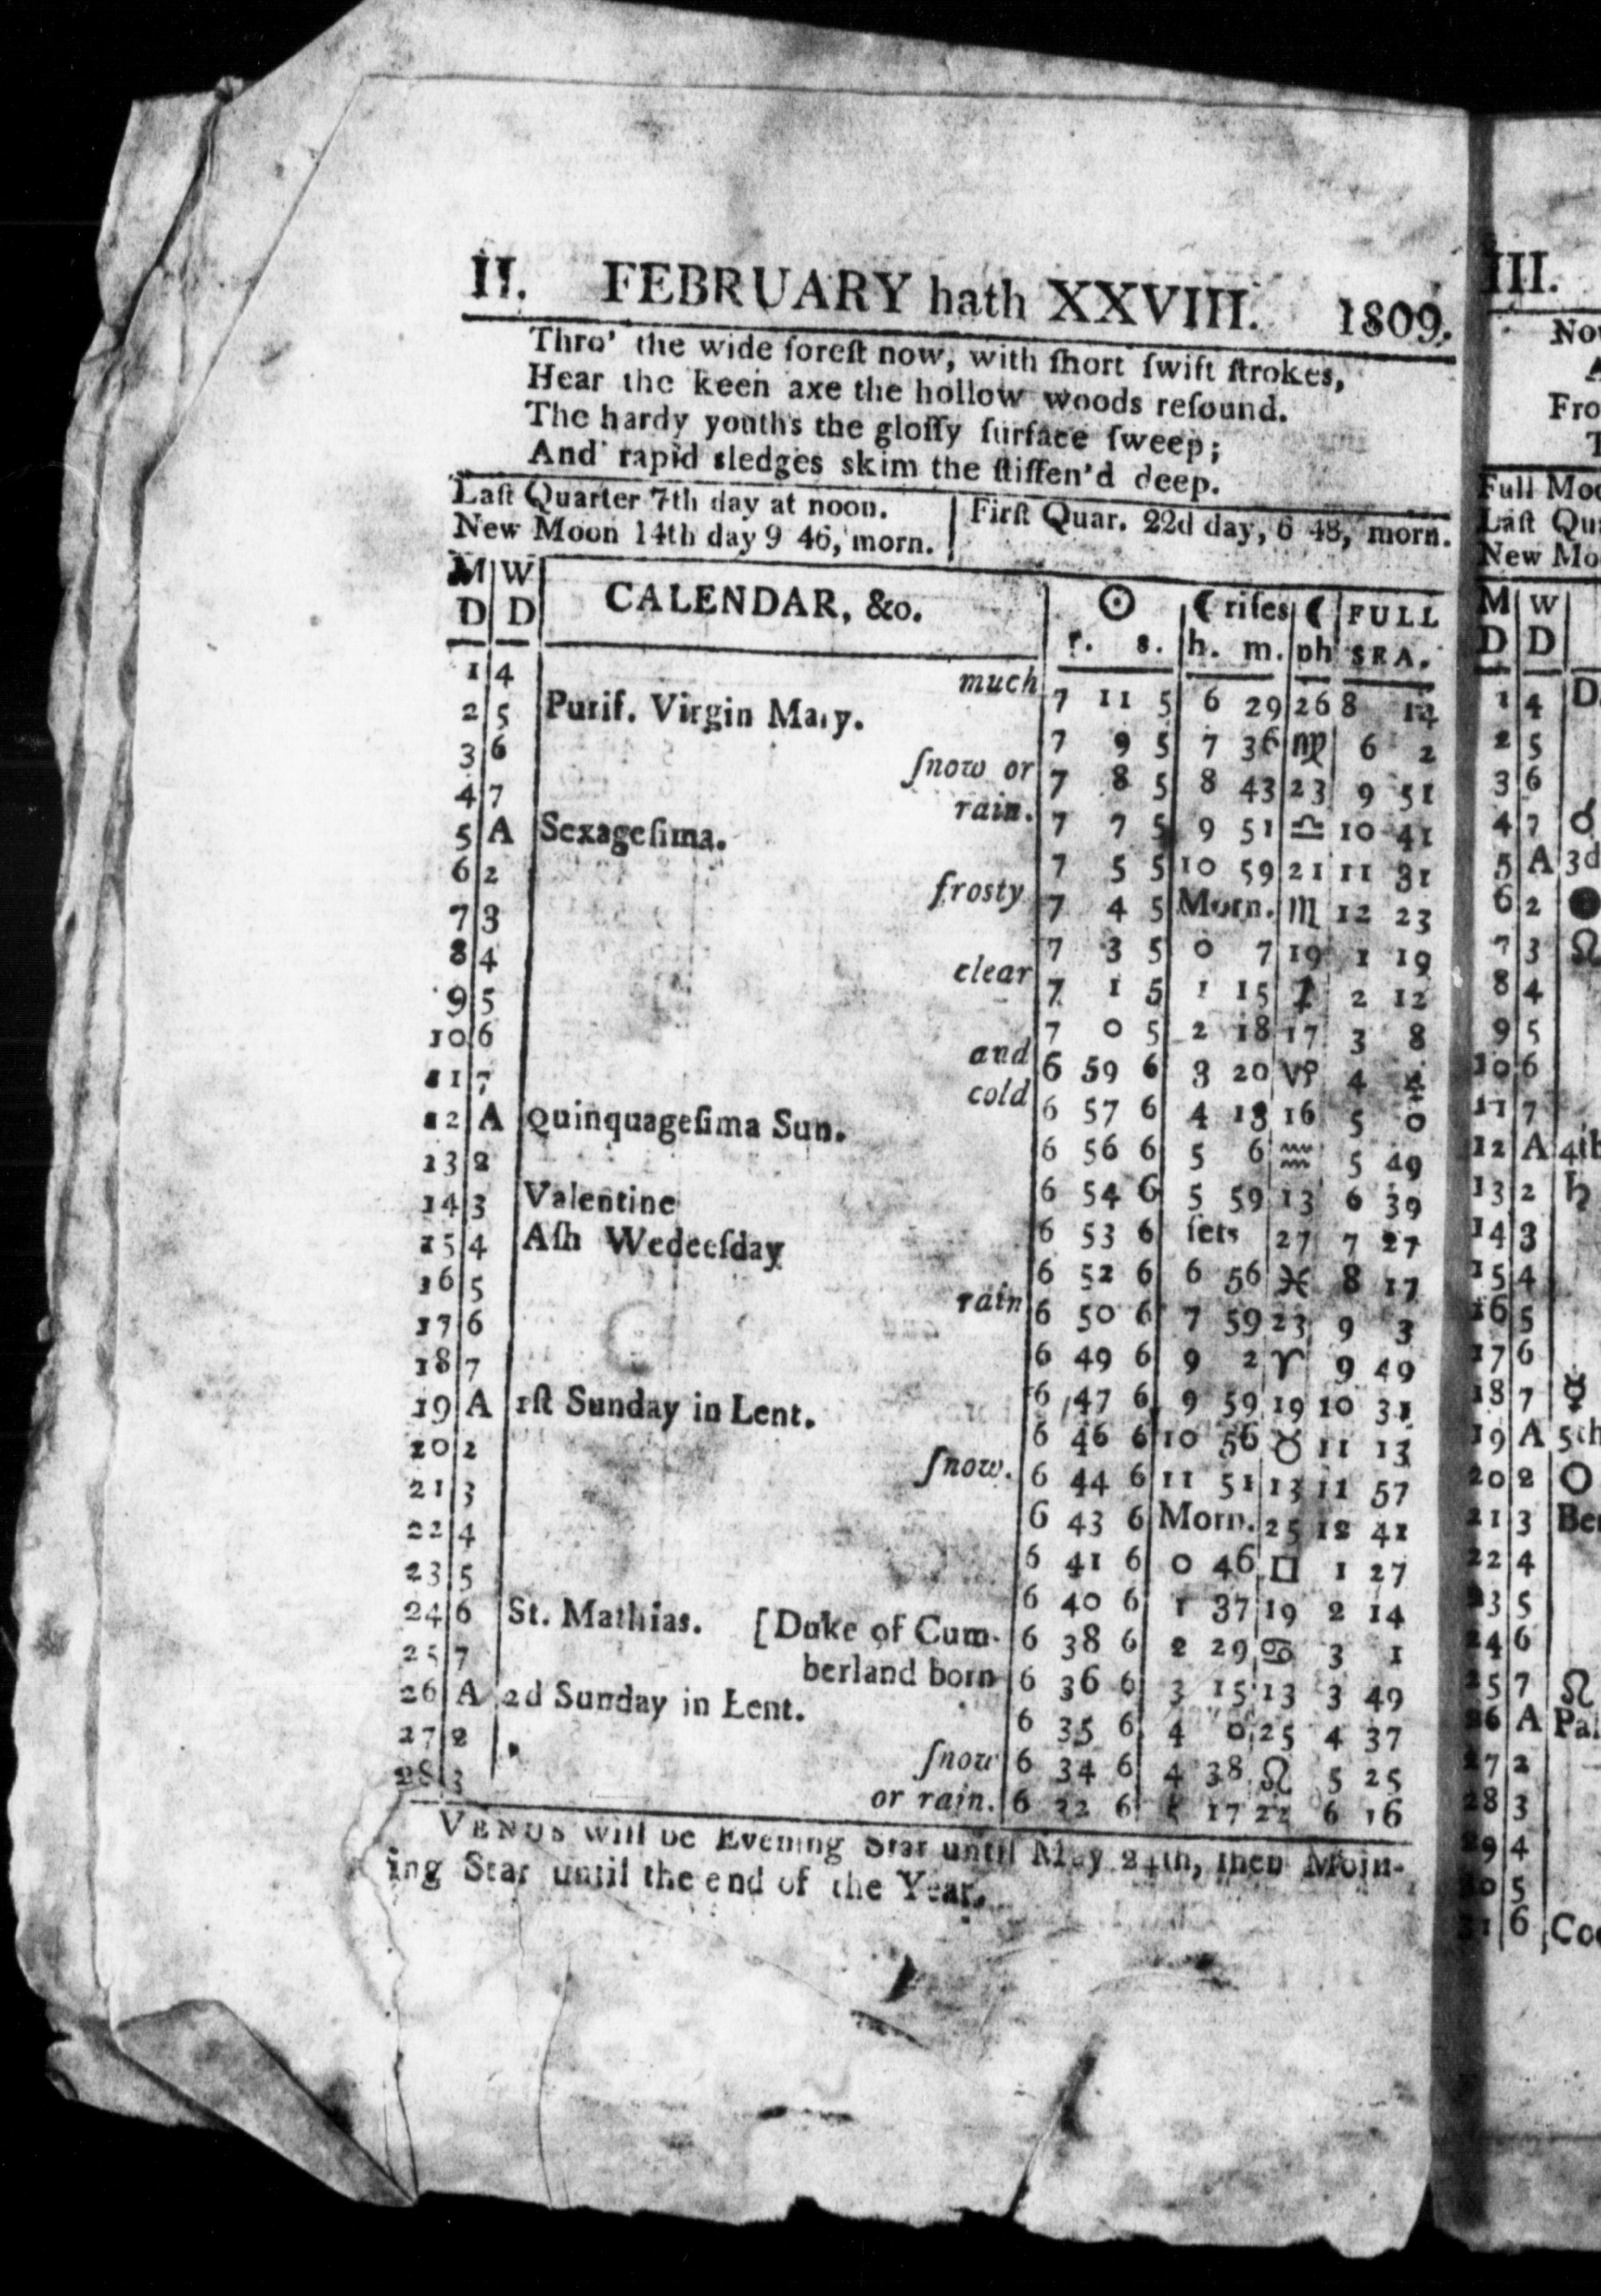 II. FEBRUARY hath XXVIII. 1809.
Thro' the wide foreſt now, with ſhort ſwift ſtrokes,
Hear the keen axe the hollow woods reſound.
The hardy youths the gloſſy ſurface ſweep;
And rapid sledges skim the ſtiffen'd deep.
Laſt Quarter 7th day at noon. | Firſt Quar. 22d day, 6 48, morn.
New Moon 14th day 9 46, morn.
M D | W D | CALENDAR, &o. | ☉ r. s. | ☾ riſes h. m. | ☾ ph | FULL SEA.
1 4 much 7 11 5 6 29 26 8 14
2 5 Purif. Virgin Mary. 7 9 5 7 36 ♍ 6 2
3 6 ſnow or 7 8 5 8 43 23 9 51
4 7 rain. 7 7 5 9 51 ♎ 10 41
5 A Sexageſima. 7 5 5 10 59 21 11 31
6 2 frosty 7 4 5 Morn. ♏ 12 23
7 3 7 3 5 0 7 19 1 19
8 4 clear 7 1 5 1 15 ♐ 2 12
9 5 7 0 5 2 18 17 3 8
10 6 and 6 59 6 3 20 ♑ 4 4
11 7 cold 6 57 6 4 13 16 5 0
12 A Quinquageſima Sun. 6 56 6 5 6 ♒ 5 49
13 2 6 54 6 5 59 13 6 39
14 3 Valentine 6 53 6 ſets 27 7 27
15 4 Aſh Wedeeſday 6 52 6 6 56 ♓ 8 17
16 5 rain 6 50 6 7 59 23 9 3
17 6 6 49 6 9 2 ♈ 9 49
18 7 6 47 6 9 59 19 10 31
19 A 1ſt Sunday in Lent. 6 46 6 10 56 ♉ 11 13
20 2 ſnow. 6 44 6 11 51 13 11 57
21 3 6 43 6 Morn. 25 12 41
22 4 6 41 6 0 46 □ 1 27
23 5 6 40 6 1 37 19 2 14
24 6 St. Mathias. [Duke of Cum- 6 38 6 2 29 ♋ 3 1
25 7 berland born 6 36 6 3 15 13 3 49
26 A 2d Sunday in Lent. 6 35 6 4 0 25 4 37
27 2 ſnow 6 34 6 4 38 ♌ 5 25
28 3 or rain. 6 22 6 5 17 22 6 16
VENUS will be Evening Star until May 24th, then Morn-
ing Star until the end of the Year.
III.
Fro
Full Moo
Laſt Qua
New Mo
M D | W D
1 4 D
2 5
3 6
4 7 ☌
5 A 3d
6 2 ●
7 3 ☊
8 4
9 5
10 6
11 7
12 A 4th
13 2 ♄
14 3
15 4
16 5
17 6
18 7 ☿
19 A 5th
20 2 O
21 3 Be
22 4
23 5
24 6
25 7 ☊
26 A Pal
27 2
28 3
29 4
30 5
31 6 Co